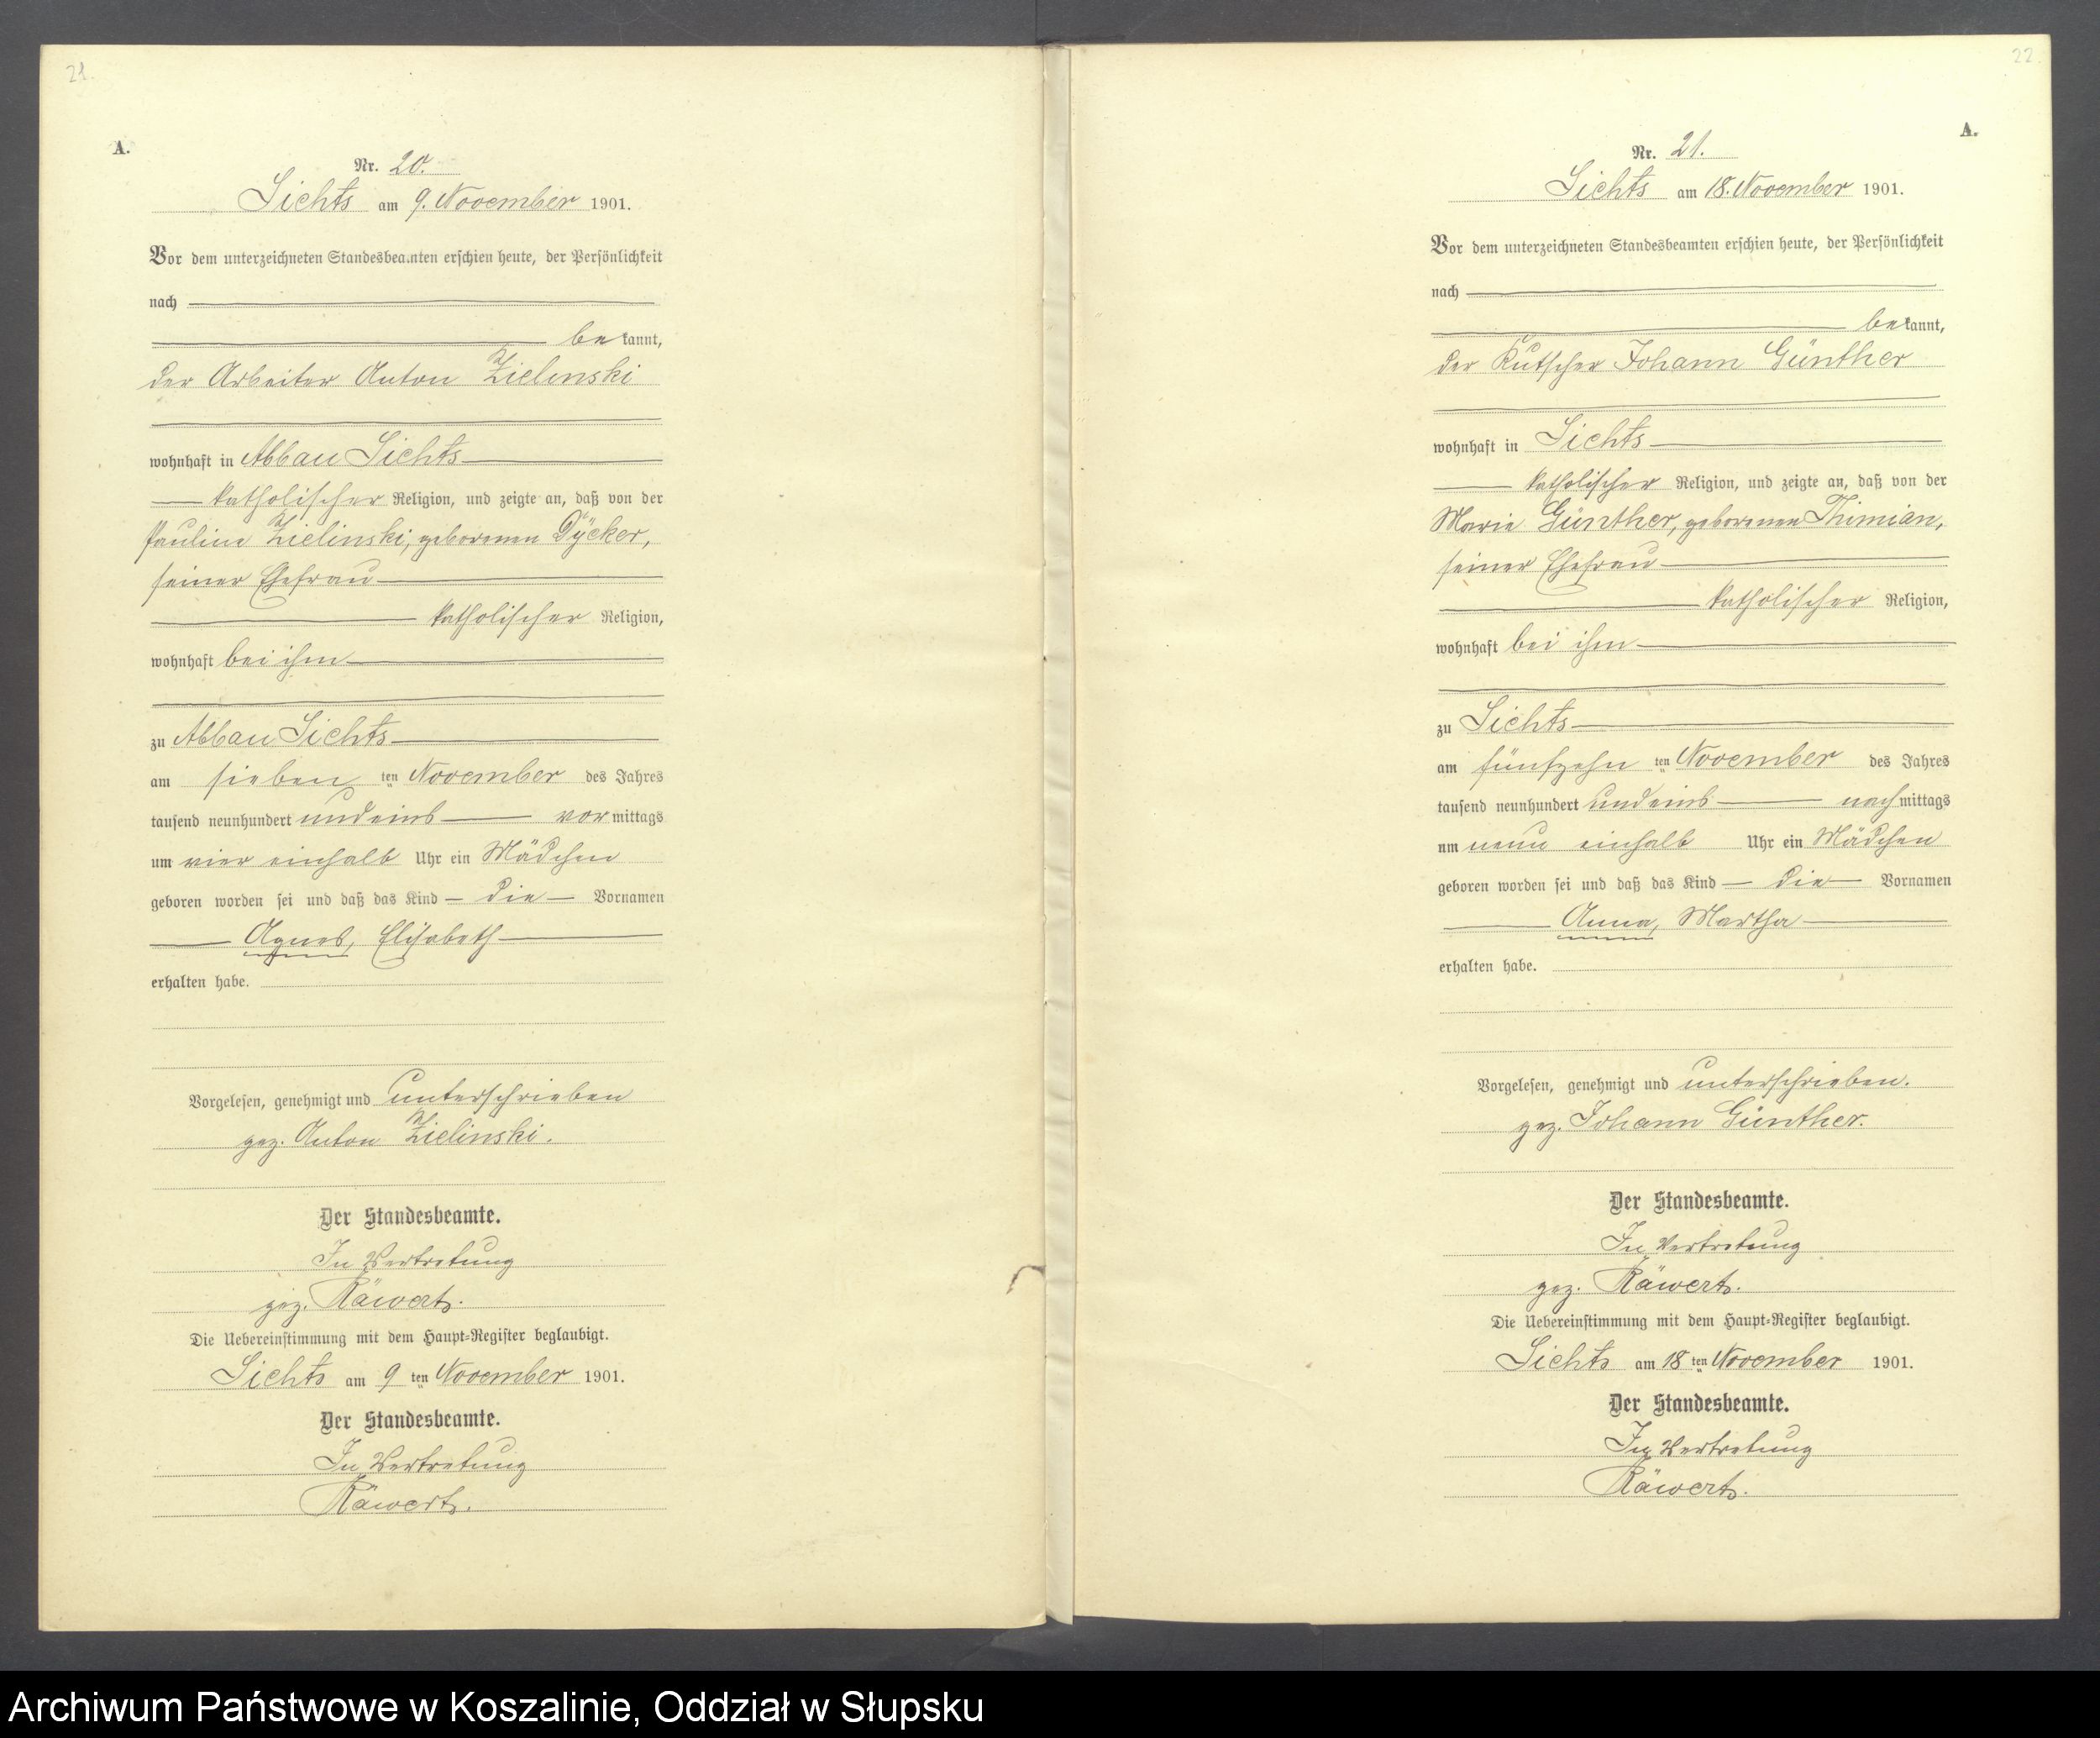 21.
A.
Nr. 20.
Lichts am 9. November 1901.
Vor dem unterzeichneten Standesbeamten erschien heute, der Persönlichkeit
nach
bekannt,
der Arbeiter Anton Zielinski
wohnhaft in Abbau Lichts
katholischer Religion, und zeigte an, daß von der
Pauline Zielinski, geborenen Dÿcker,
seiner Ehefrau
katholischer Religion,
wohnhaft bei ihm
zu Abbau Lichts
am sieben ten November des Jahres
tausend neunhundert und eins vormittags
um vier einhalb Uhr ein Mädchen
geboren worden sei und daß das Kind – die – Vornamen
Agnes, Elisabeth
erhalten habe.
Vorgelesen, genehmigt und unterschrieben
gez. Anton Zielinski.
Der Standesbeamte.
In Vertretung
gez. Räwerts.
Die Uebereinstimmung mit dem Haupt-Register beglaubigt.
Lichts am 9 ten November 1901.
Der Standesbeamte.
In Vertretung
Räwerts.
22.
A.
Nr. 21.
Lichts am 18. November 1901.
Vor dem unterzeichneten Standesbeamten erschien heute, der Persönlichkeit
nach
bekannt,
der Kutscher Johann Günther
wohnhaft in Lichts
katholischer Religion, und zeigte an, daß von der
Marie Günther, geborenen Thimian,
seiner Ehefrau
katholischer Religion,
wohnhaft bei ihm
zu Lichts
am fünfzehn ten November des Jahres
tausend neunhundert und eins nachmittags
um neun einhalb Uhr ein Mädchen
geboren worden sei und daß das Kind – die – Vornamen
Anna, Martha
erhalten habe.
Vorgelesen, genehmigt und unterschrieben.
gez. Johann Günther.
Der Standesbeamte.
In Vertretung
gez. Räwerts.
Die Uebereinstimmung mit dem Haupt-Register beglaubigt.
Lichts am 18 ten November 1901.
Der Standesbeamte.
In Vertretung
Räwerts.
Archiwum Państwowe w Koszalinie, Oddział w Słupsku